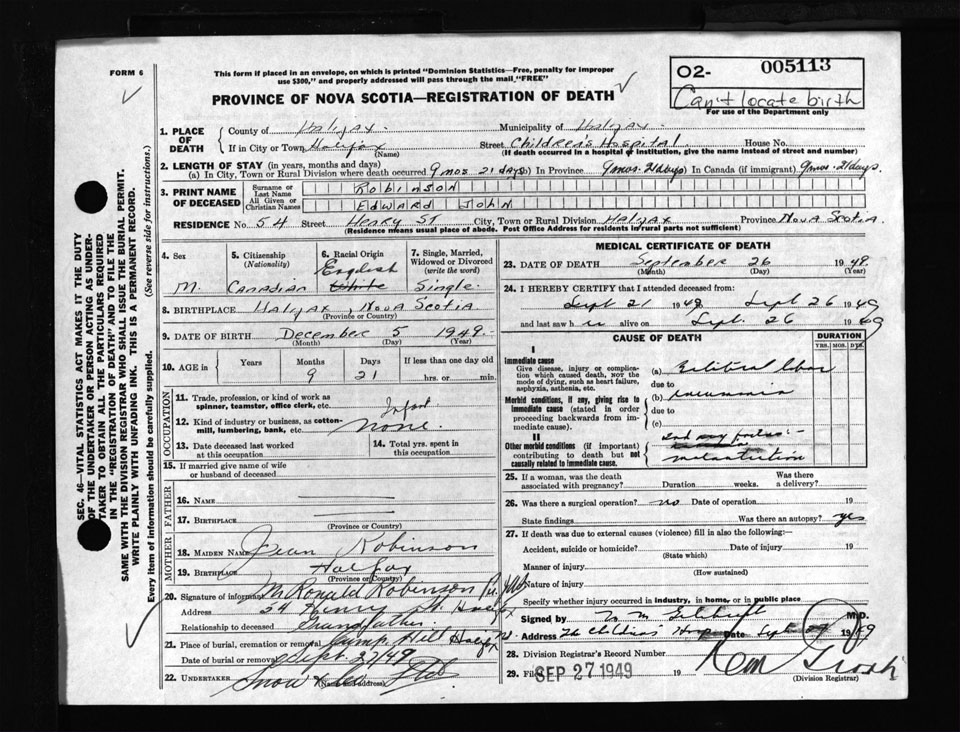 FORM 6
This form if placed in an envelope, on which is printed "Dominion Statistics—Free, penalty for improper
use $300," and properly addressed will pass through the mail "FREE"
PROVINCE OF NOVA SCOTIA—REGISTRATION OF DEATH
02- 005113
Can't locate birth
For use of the Department only
1. PLACE OF DEATH
County of Halifax Municipality of Halifax
If in City or Town Halifax (Name) Street Children's Hospital House No.
(If death occurred in a hospital or institution, give the name instead of street and number)
2. LENGTH OF STAY (in years, months and days)
(a) In City, Town or Rural Division where death occurred 9 mos 21 days (b) In Province 9 mos. 21 days In Canada (if immigrant) 9 mos. 21 days.
3. PRINT NAME OF DECEASED
Surname or Last Name ROBINSON
All Given or Christian Names EDWARD JOHN
RESIDENCE No. 54 Street Henry St City, Town or Rural Division Halifax Province Nova Scotia
(Residence means usual place of abode. Post Office Address for residents in rural parts not sufficient)
4. Sex
M.
5. Citizenship (Nationality)
Canadian
6. Racial Origin
English
White
7. Single, Married, Widowed or Divorced (write the word)
Single.
8. BIRTHPLACE Halifax, Nova Scotia
(Province or Country)
9. DATE OF BIRTH December 5 1948
(Month) (Day) (Year)
10. AGE in Years Months Days If less than one day old
9 21 hrs. or min.
OCCUPATION
11. Trade, profession, or kind of work as spinner, teamster, office clerk, etc. Infant
12. Kind of industry or business, as cotton-mill, lumbering, bank, etc. none.
13. Date deceased last worked at this occupation
14. Total yrs. spent in this occupation
15. If married give name of wife or husband of deceased
FATHER
16. NAME
17. BIRTHPLACE
(Province or Country)
MOTHER
18. MAIDEN NAME Jean Robinson
19. BIRTHPLACE Halifax
(Province or Country)
20. Signature of informant M. Ronald Robinson
Address 54 Henry St. Halifax
Relationship to deceased Grandfather
21. Place of burial, cremation or removal Camp Hill Halifax
Date of burial or removal Sept. 27/49
22. UNDERTAKER Snow & Co
(Name and address)
MEDICAL CERTIFICATE OF DEATH
23. DATE OF DEATH September 26 1949.
(Month) (Day) (Year)
24. I HEREBY CERTIFY that I attended deceased from:
Sept 21 1949, Sept 26 1949
and last saw h alive on Sept. 26 1949
CAUSE OF DEATH
DURATION
YRS. MOS. DYS.
I
Immediate cause
Give disease, injury or complication which caused death, NOT the mode of dying, such as heart failure, asphyxia, asthenia, etc.
(a)
due to
(b) pneumonia
due to
(c)
Morbid conditions, if any, giving rise to immediate cause (stated in order proceeding backwards from immediate cause).
II
Other morbid conditions (if important) contributing to death but not causally related to immediate cause.
malnutrition
25. If a woman, was the death associated with pregnancy? Duration weeks. Was there a delivery?
26. Was there a surgical operation? no Date of operation 19
State findings Was there an autopsy? yes
27. If death was due to external causes (violence) fill in also the following:—
Accident, suicide or homicide? Date of injury 19
(State which)
Manner of injury
(How sustained)
Nature of injury
Specify whether injury occurred in industry, in home, or in public place
Signed by M.D.
Address Date Sept 1949
28. Division Registrar's Record Number
29. Filed SEP 27 1949 19
(Division Registrar)
SEC. 46—VITAL STATISTICS ACT MAKES IT THE DUTY
OF THE UNDERTAKER OR PERSON ACTING AS UNDER-
TAKER TO OBTAIN ALL THE PARTICULARS REQUIRED
IN THE "REGISTRATION OF DEATH" AND TO FILE THE
SAME WITH THE DIVISION REGISTRAR WHO SHALL ISSUE THE BURIAL PERMIT.
WRITE PLAINLY WITH UNFADING INK. THIS IS A PERMANENT RECORD.
Every item of information should be carefully supplied. (See reverse side for instructions.)